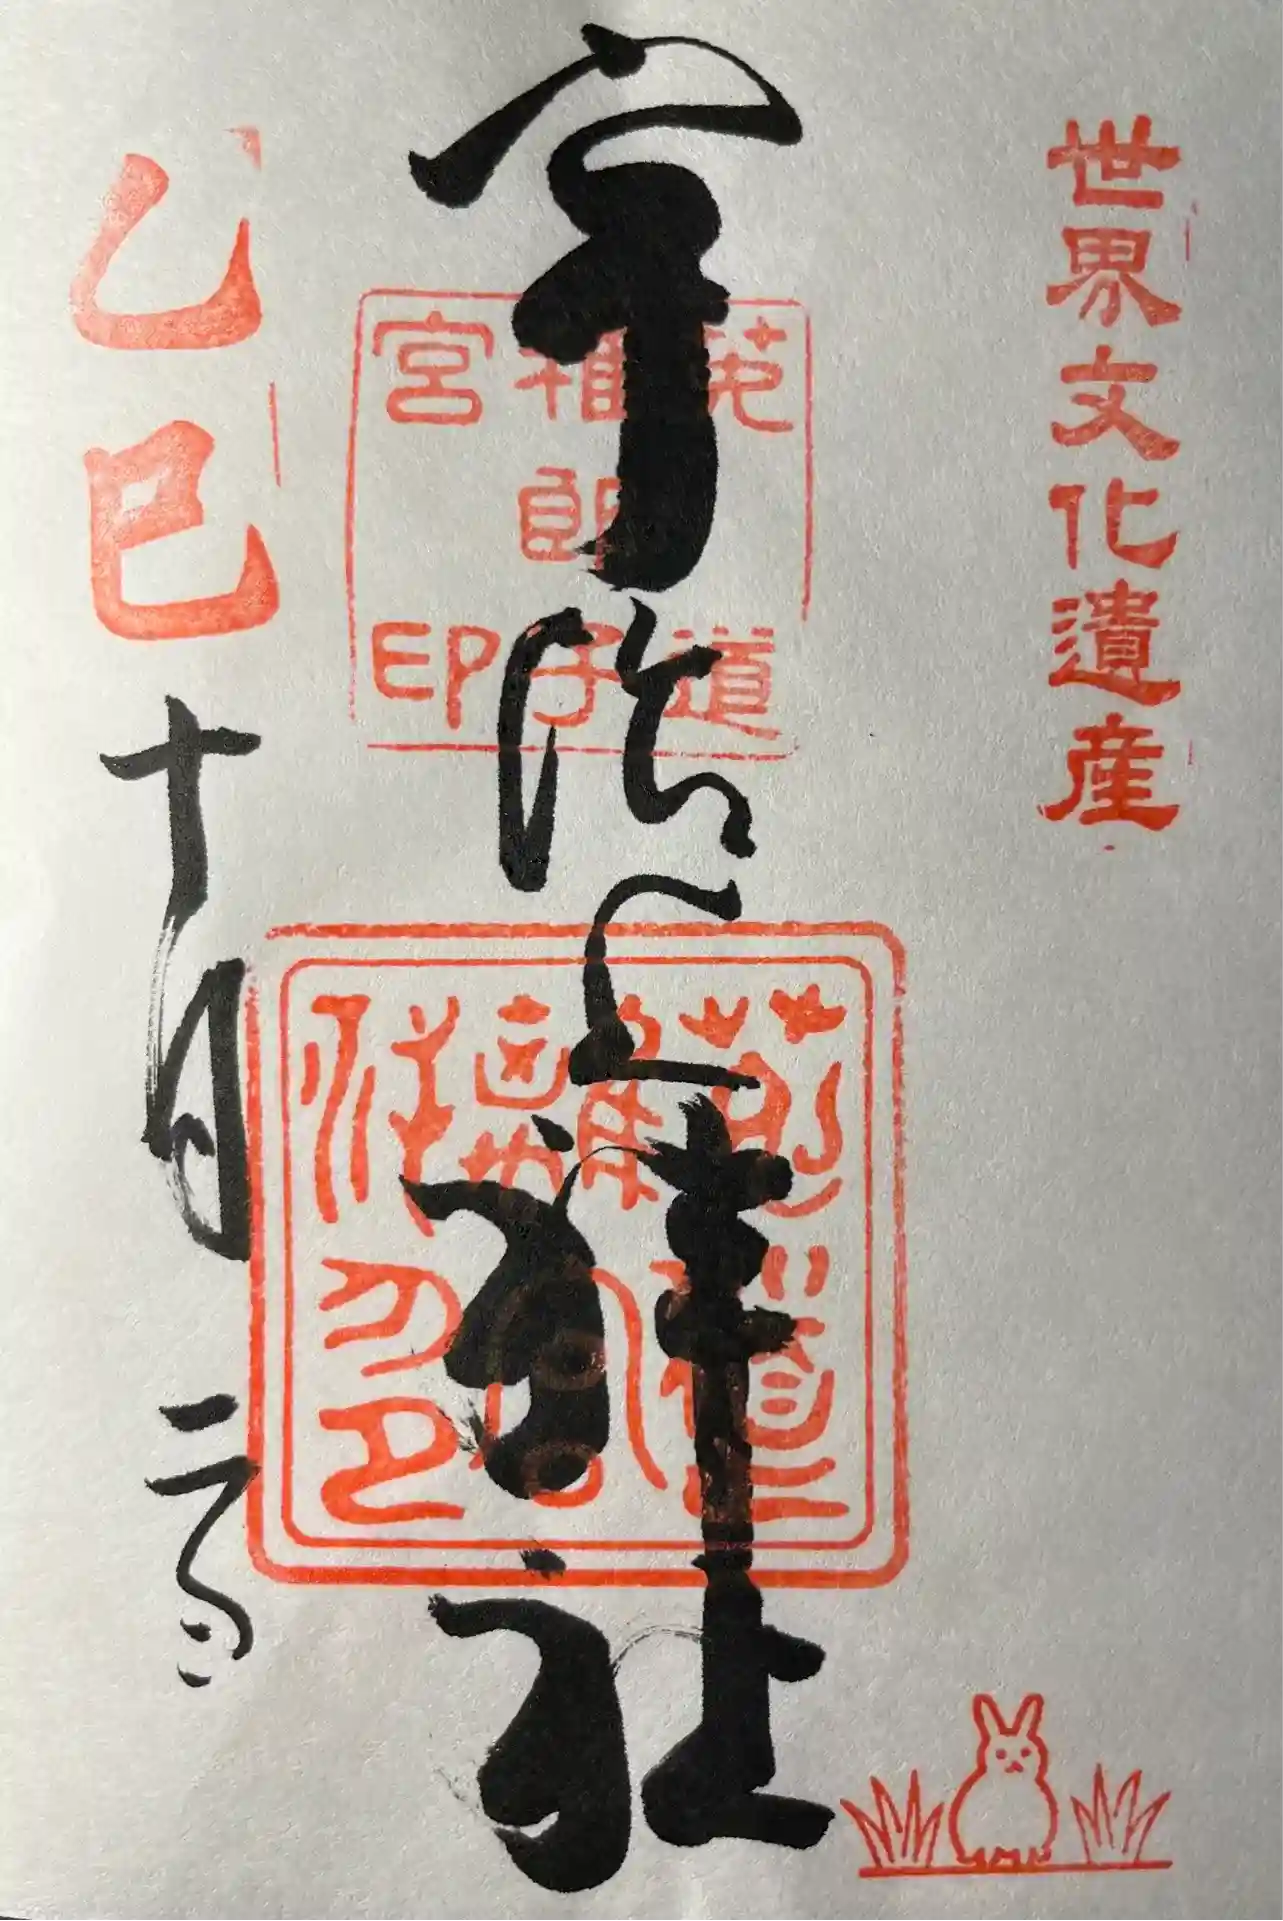 世界文化遺産
宇治上神社
菟道
稚郎子
宮印
乙巳十月二日